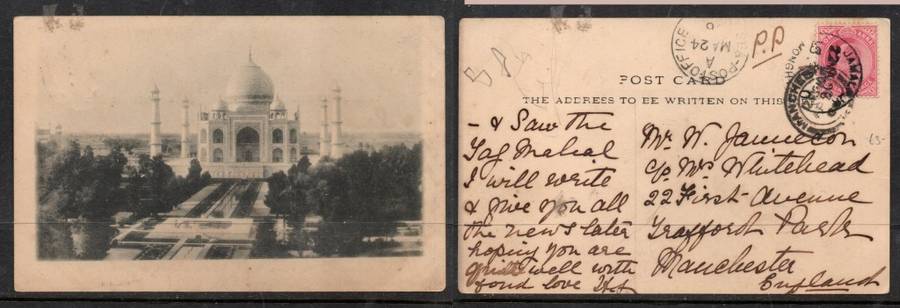 P.P
POST OFFICE
MA 24
A
POST CARD
THE ADDRESS TO BE WRITTEN ON THIS
- & Saw the
Tag Mahal
I will write
& give you all
the news later
hoping you are
quite well with
fond love
Mr. W. Jamieson
c/o Mrs Whitehead
22 First Avenue
Trafford Park
Manchester
England